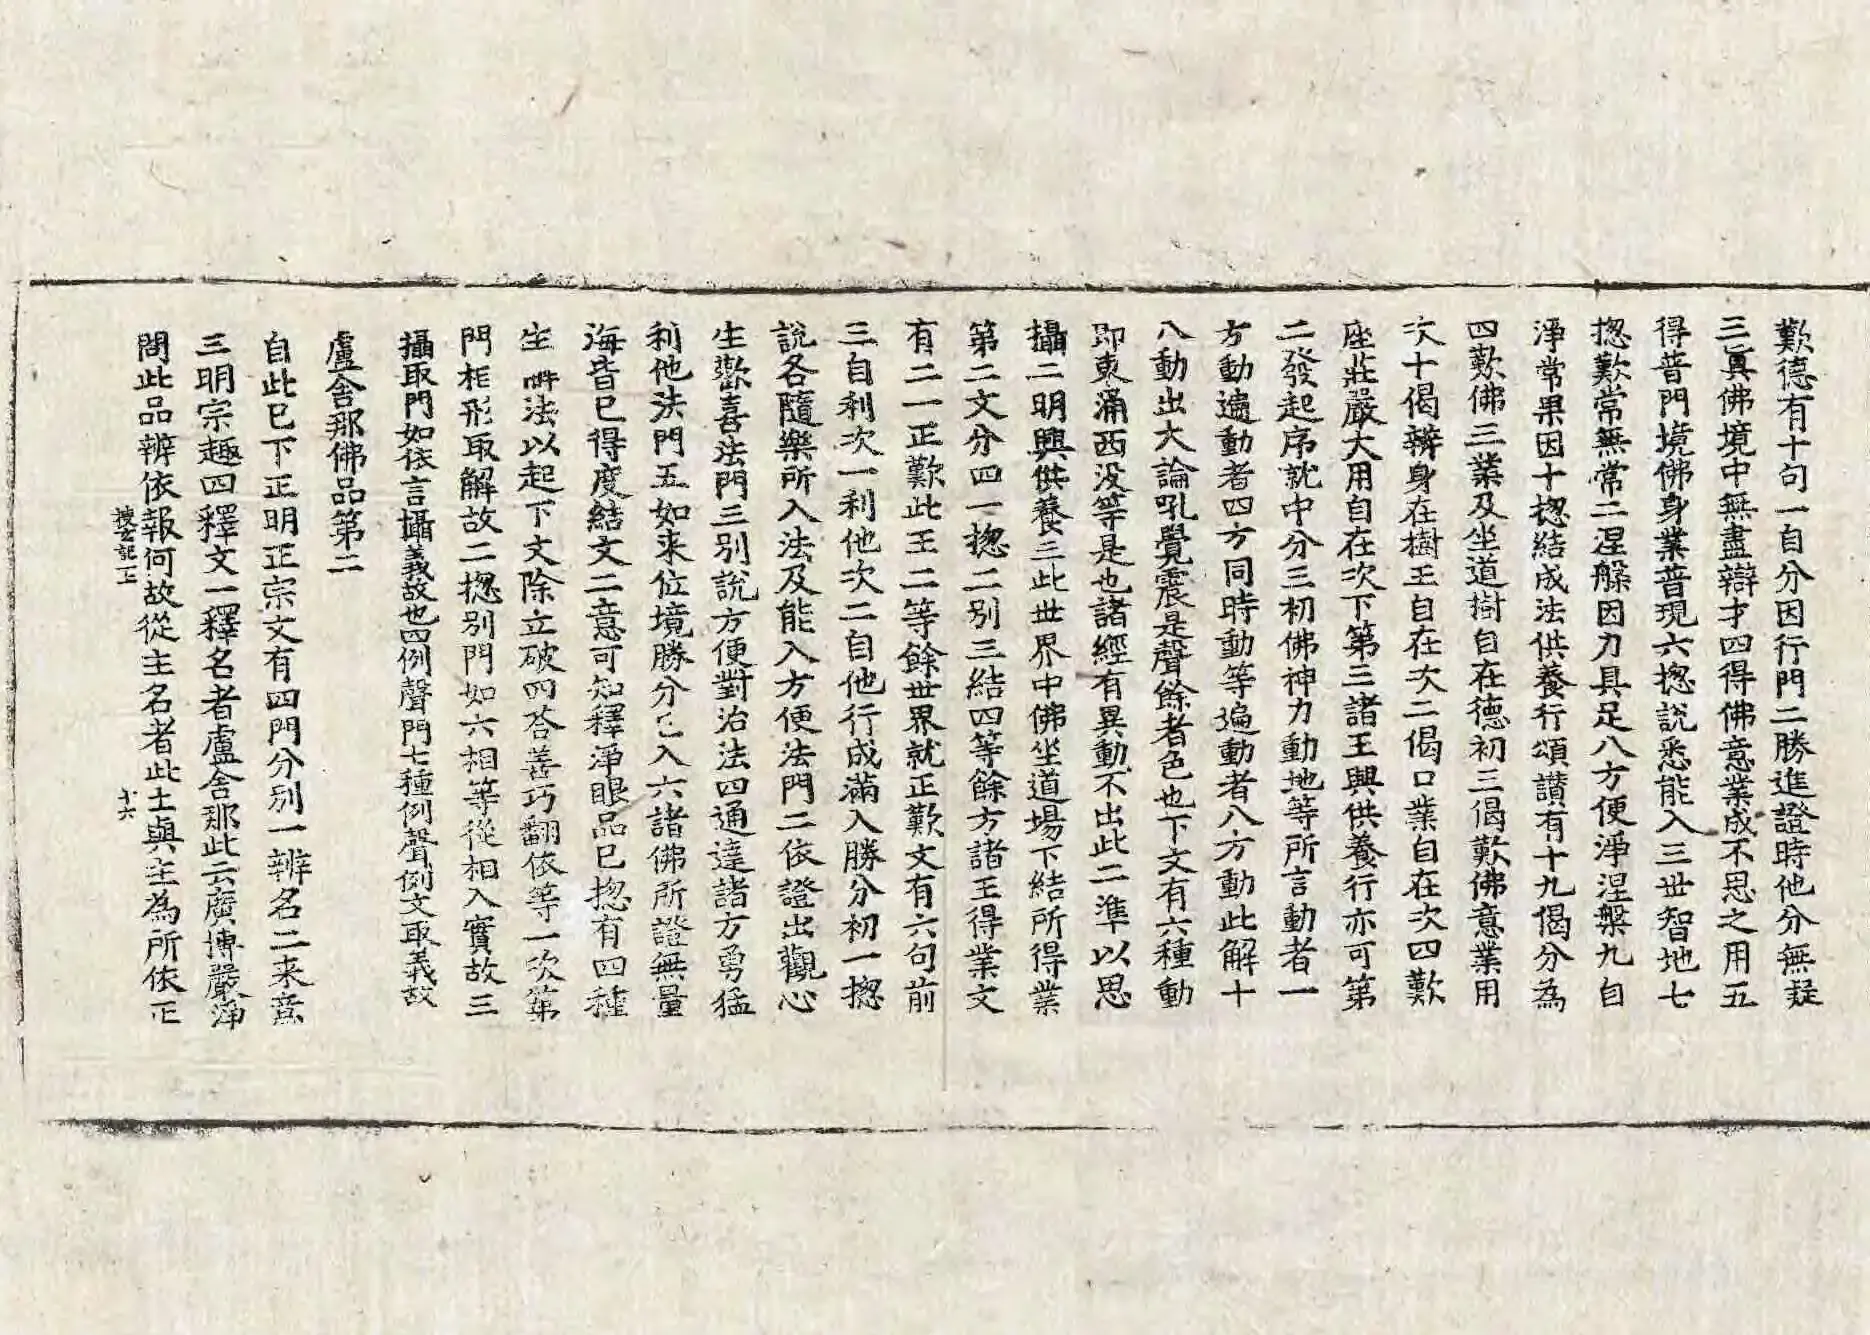 歎德有十句一自分因行門二勝進證時他分無疑
三眞佛境中無盡辯才四得佛意業成不思之用五
得普門境佛身業普現六揔說悉能入三世智地七
揔歎常無常二涅槃因力具足八方便淨涅槃九自
淨常果因十揔結成法供養行頌讃有十九偈分為
四歎佛三業及坐道樹自在德初三偈歎佛意業用
次十偈辨身在樹王自在次二偈口業自在次四歎
座莊嚴大用自在次下第三諸王興供養行亦可第
二發起序就中分三初佛神力動地等所言動者一
方動遍動者四方同時動等遍動者八方動此解十
八動出大論吼覺震是聲餘者色也下文有六種動
即東涌西没等是也諸經有異動不出此二準以思
攝二明興供養三此世界中佛坐道場下結所得業
第二文分四一揔二別三結四等餘方諸王得業文
有二一正歎此王二等餘世界就正歎文有六句前
三自利次一利他次二自他行成滿入勝分初一揔
說各隨樂所入法及能入方便法門二依證出觀心
生歡喜法門三別說方便對治法四通達諸方勇猛
利他法門五如来位境勝分已入六諸佛所證無量
海皆已得度結文二意可知釋淨眼品已揔有四種
生 法以起下文除立破四荅善巧翻依等一次第
門相形取解故二揔別門如六相等從相入實故三
攝取門如依言攝義故也四例聲門七種例聲例文取義故
盧舍那佛品第二
自此已下正明正宗文有四門分別一辨名二来意
三明宗趣四釋文一釋名者盧舍那此云廣博嚴淨
問此品辨依報何故從主名者此土與主為所依正
搜玄記一上 十六